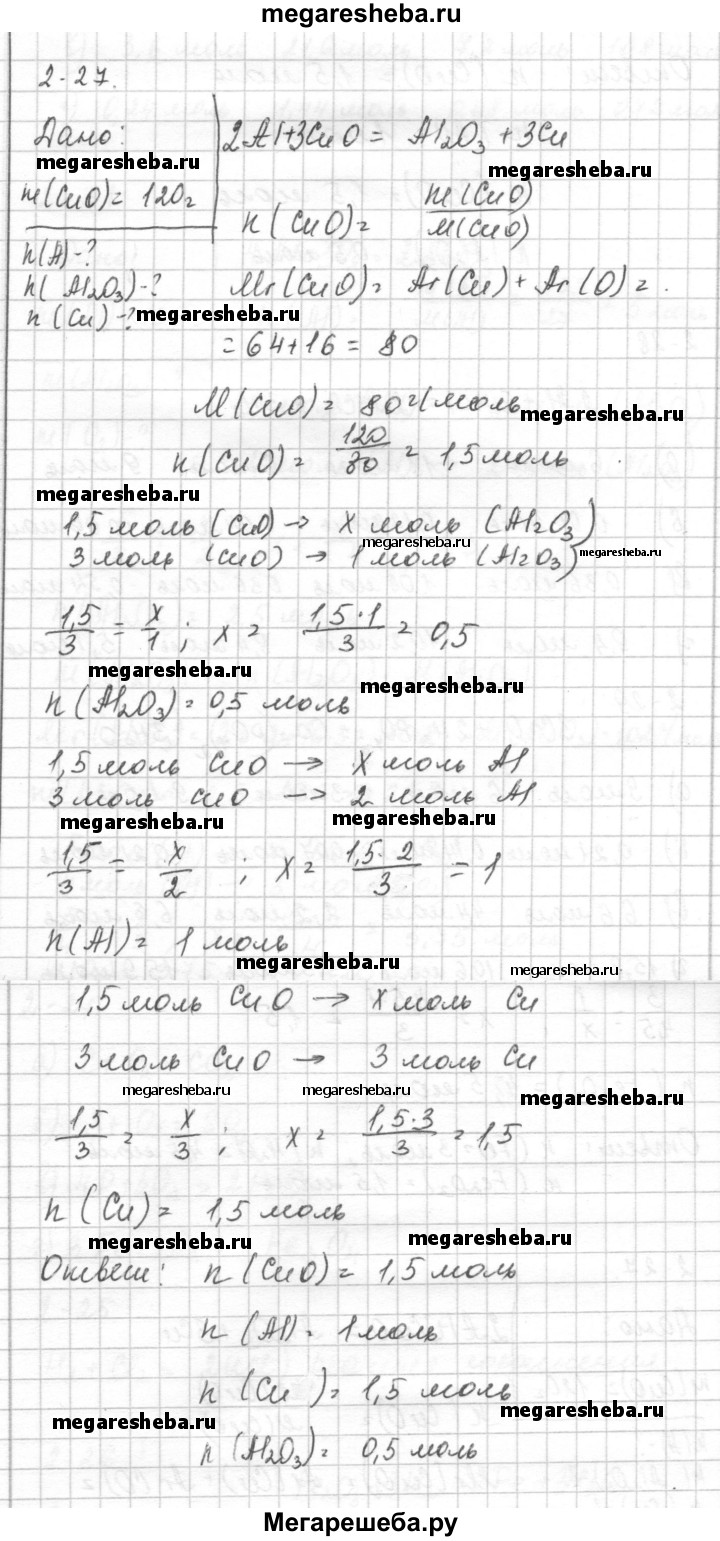 megaresheba.ru
2-27.
Дано: 2Al+3CuO = Al₂O₃ + 3Cu
megaresheba.ru megaresheba.ru
m(CuO) = 120г n(CuO) = m(CuO)/M(CuO)
n(Al)-?
n(Al₂O₃)-? Mr(CuO) = Ar(Cu) + Ar(O) =
n(Cu)-? megaresheba.ru
= 64+16 = 80
M(CuO) = 80г/моль megaresheba.ru
n(CuO) = 120/80 = 1,5 моль
megaresheba.ru
1,5 моль (CuO) → x моль (Al₂O₃)
megaresheba.ru megaresheba.ru
3 моль (CuO) → 1 моль (Al₂O₃)
1,5/3 = x/1 ; x = 1,5·1/3 = 0,5
megaresheba.ru megaresheba.ru
n(Al₂O₃) = 0,5 моль
1,5 моль CuO → x моль Al
3 моль CuO → 2 моль Al
megaresheba.ru megaresheba.ru
1,5/3 = x/2 ; x = 1,5·2/3 = 1
n(Al) = 1 моль
megaresheba.ru megaresheba.ru
1,5 моль CuO → x моль Cu
3 моль CuO → 3 моль Cu
megaresheba.ru megaresheba.ru megaresheba.ru
1,5/3 = x/3 ; x = 1,5·3/3 = 1,5
n(Cu) = 1,5 моль
megaresheba.ru megaresheba.ru
Ответ: n(CuO) = 1,5 моль
n(Al) = 1 моль
n(Cu) = 1,5 моль
megaresheba.ru megaresheba.ru
n(Al₂O₃) = 0,5 моль
Мегарешеба.ру